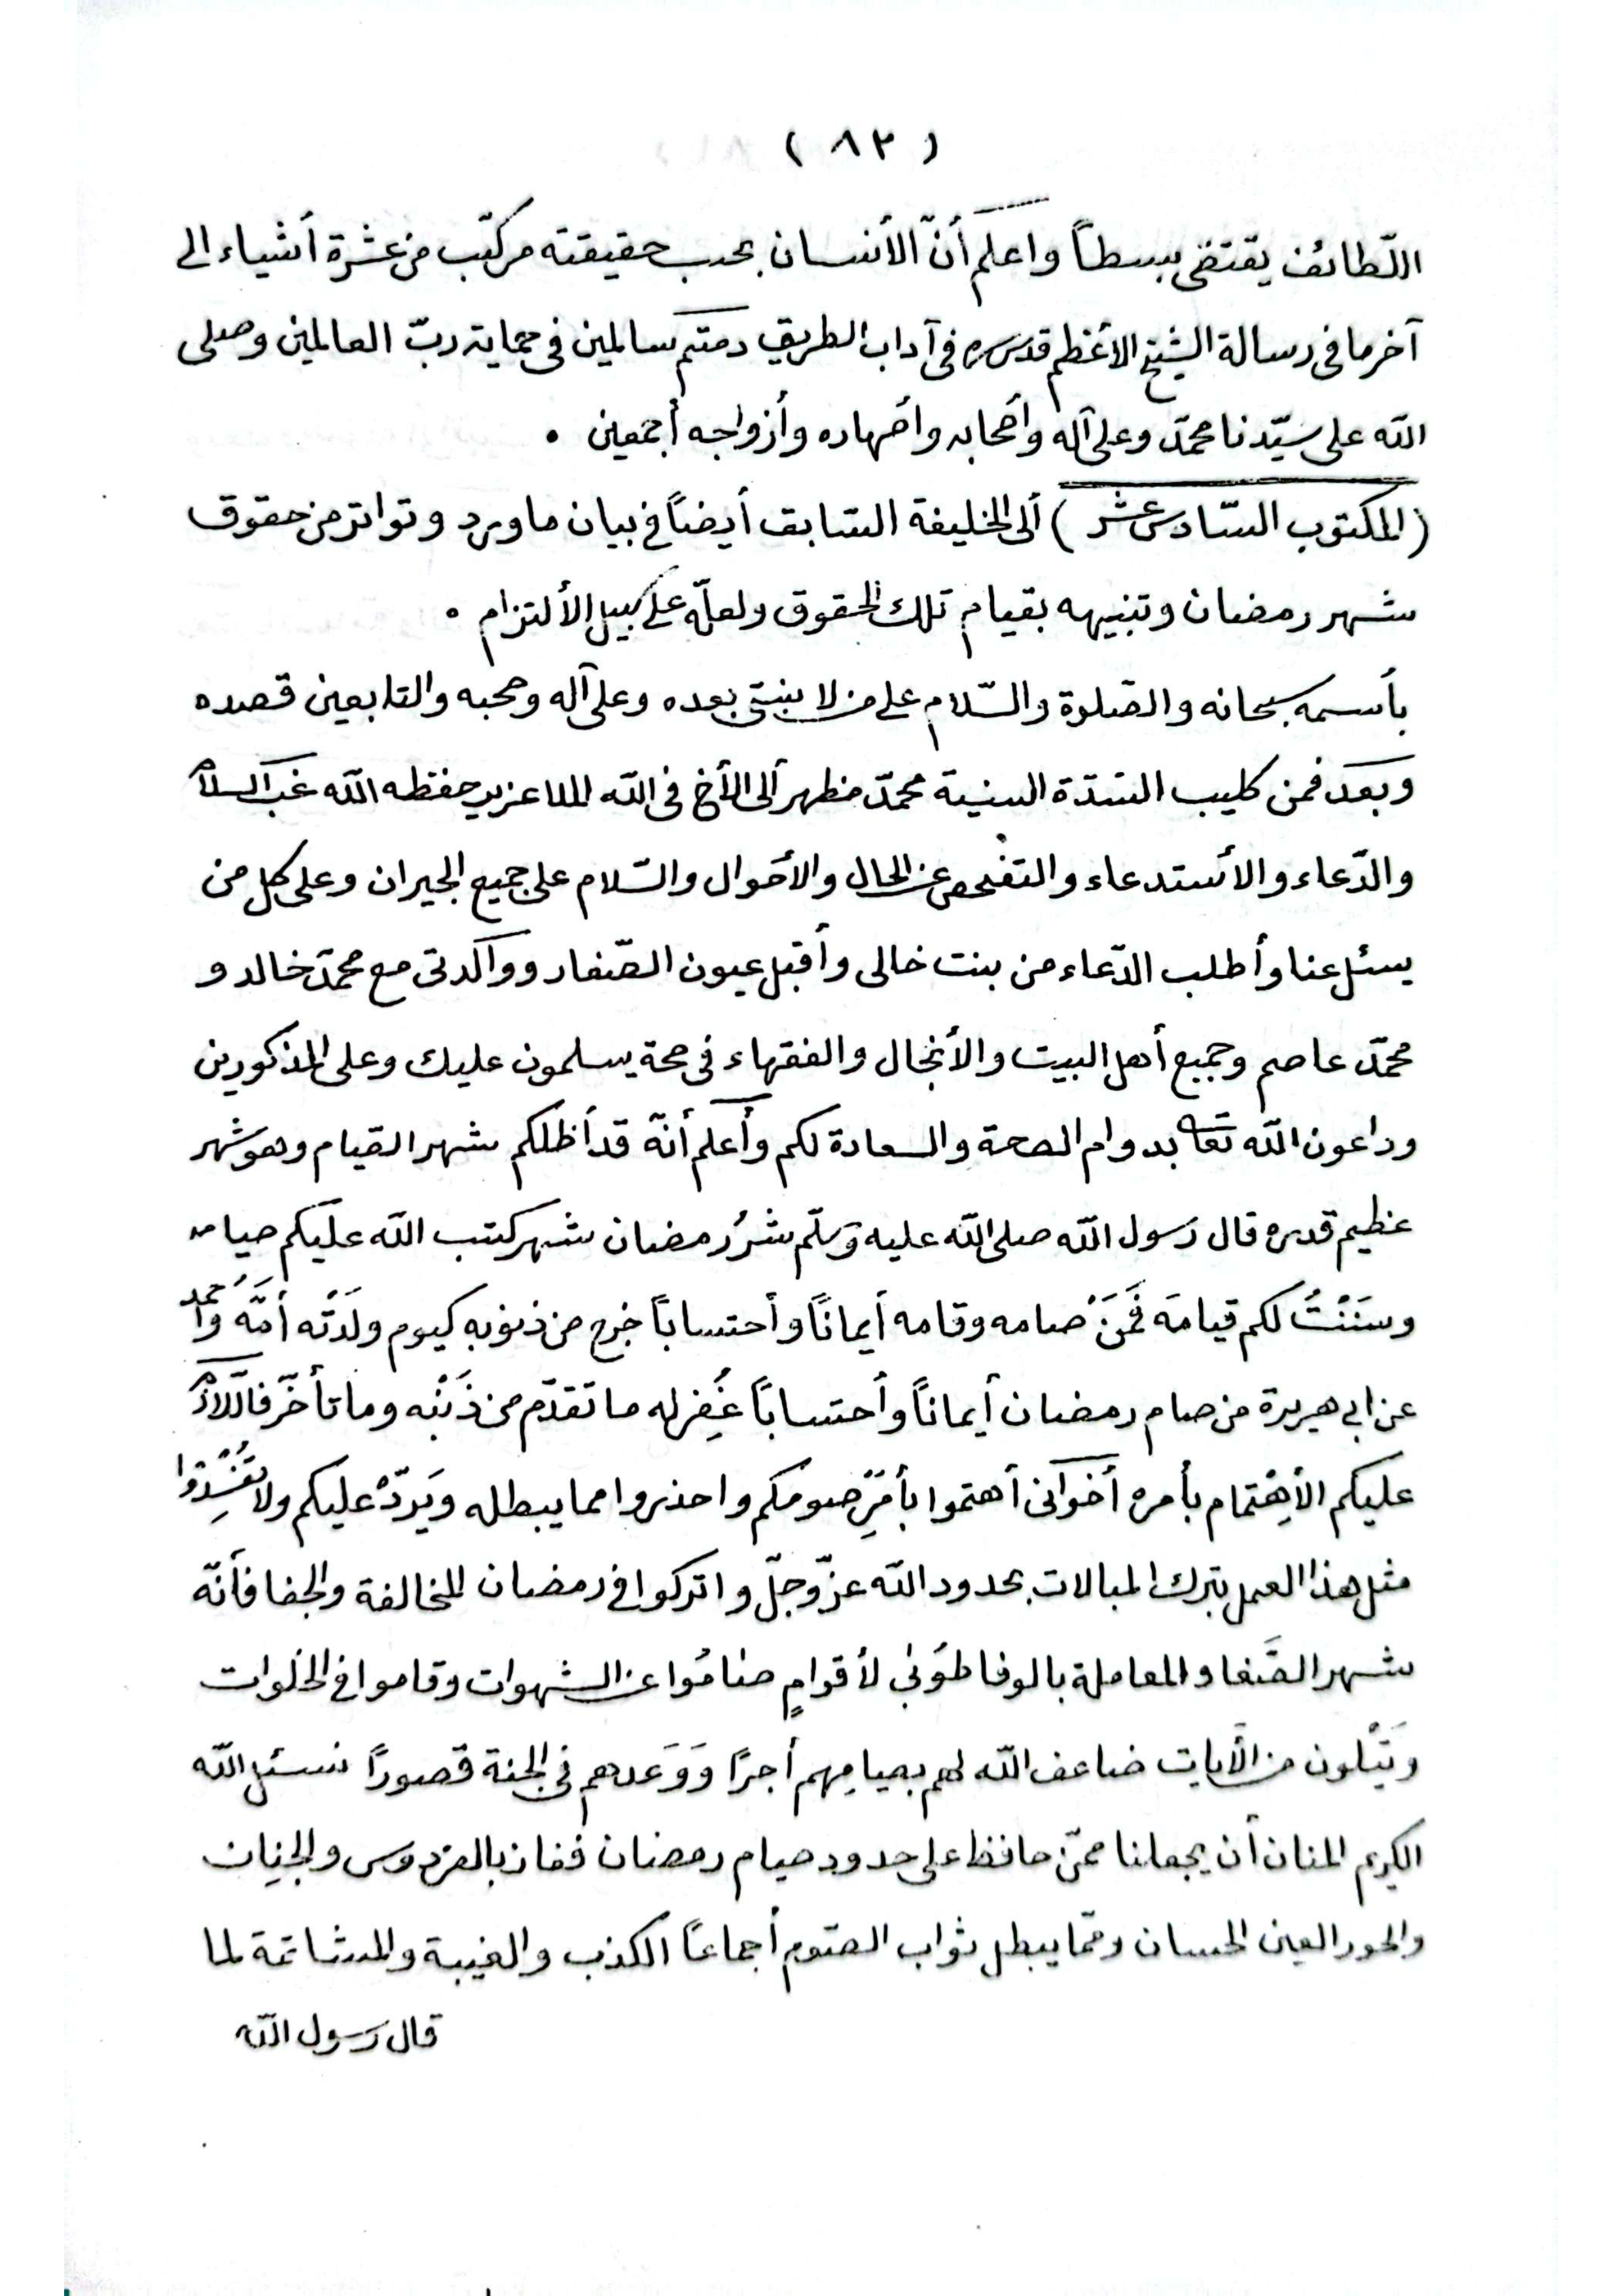 ( ٨٢ )
اللّطائف يقتضى بسطاً واعلم أنّ الأنسان بحسب حقيقته مركّب من عشرة أشياء الى
آخر ما فى رسالة الشيخ الأعظم قدس سره فى آداب الطريق دمتم سالمين فى حماية ربّ العالمين وصلى
الله على سيّدنا محمّد وعلى آله وأصحابه وأصهاره وأزواجه أجمعين ٠
( المكتوب السّادس عشر ) ألى الخليفة السّابق أيضاً فى بيان ما ورد وتواتر من حقوق
شهر رمضان وتنبيهه بقيام تلك الحقوق ولعلّه على سبيل الألتزام ٠
بأسمه سبحانه والصّلوة والسّلام على من لا نبىّ بعده وعلى آله وصحبه والتابعين قصده
وبعد فمن كليب السّدّة السنية محمّد مظهر ألى الأخ فى الله الملا عزيز حفظه الله غب السلام
والدّعاء والأستدعاء والتفحص عن الحال والأحوال والسّلام على جميع الجيران وعلى كل من
يسئل عنا وأطلب الدّعاء من بنت خالى وأقبل عيون الصّغار ووالدتى مع محمّد خالد و
محمّد عاصم وجميع أهل البيت والأنجال والفقهاء فى صحة يسلمون عليك وعلى المذكورين
وداعون الله تعا بدوام الصحة والسعادة لكم وأعلم أنّه قد أظلكم شهر القيام وهو شهر
عظيم قدره قال رسول الله صلى الله عليه وسلّم شهر رمضان شهر كتب الله عليكم صيامه
وسَنَنْتُ لكم قيامَه فَمَنْ صامه وقامه أيمانًا وأحتسابًا خرج من ذنوبه كيوم ولَدَتْه أمُّه وأحمد
عن ابى هريرة من صام رمضان أيماناً وأحتسابًا غُفِر له ما تقدّم من ذَنْبه وما تأخّر فاللّازم
عليكم الأهْتمام بأمره أخوانى أهتموا بأمْرِ صومكم واحذروا مما يبطله ويَردّه عليكم ولا تُفْسِدُوا
مثل هذا العمل بترك المبالات بحدود الله عزّ وجلّ واتركوا فى رمضان المخالفة والجفا فأنّه
شهر الصَّفا والمعاملة بالوفا طوُبى لأقوامٍ صامُوا عن الشهوات وقاموا فى الخلوات
ويَتْلون من الآيات ضاعف الله لهم بصيامِهم أجرًا وَوَعَدهم فى الجنة قصورًا نسئل الله
الكريم المنان أن يجعلنا ممّن حافظ على حدود صيام رمضان ففاز بالفردوس والجِنان
والحور العين الحسان وممّا يبطل ثواب الصّوم أجماعًا الكذب والغيبة والمشاتمة لما
قال رسول الله